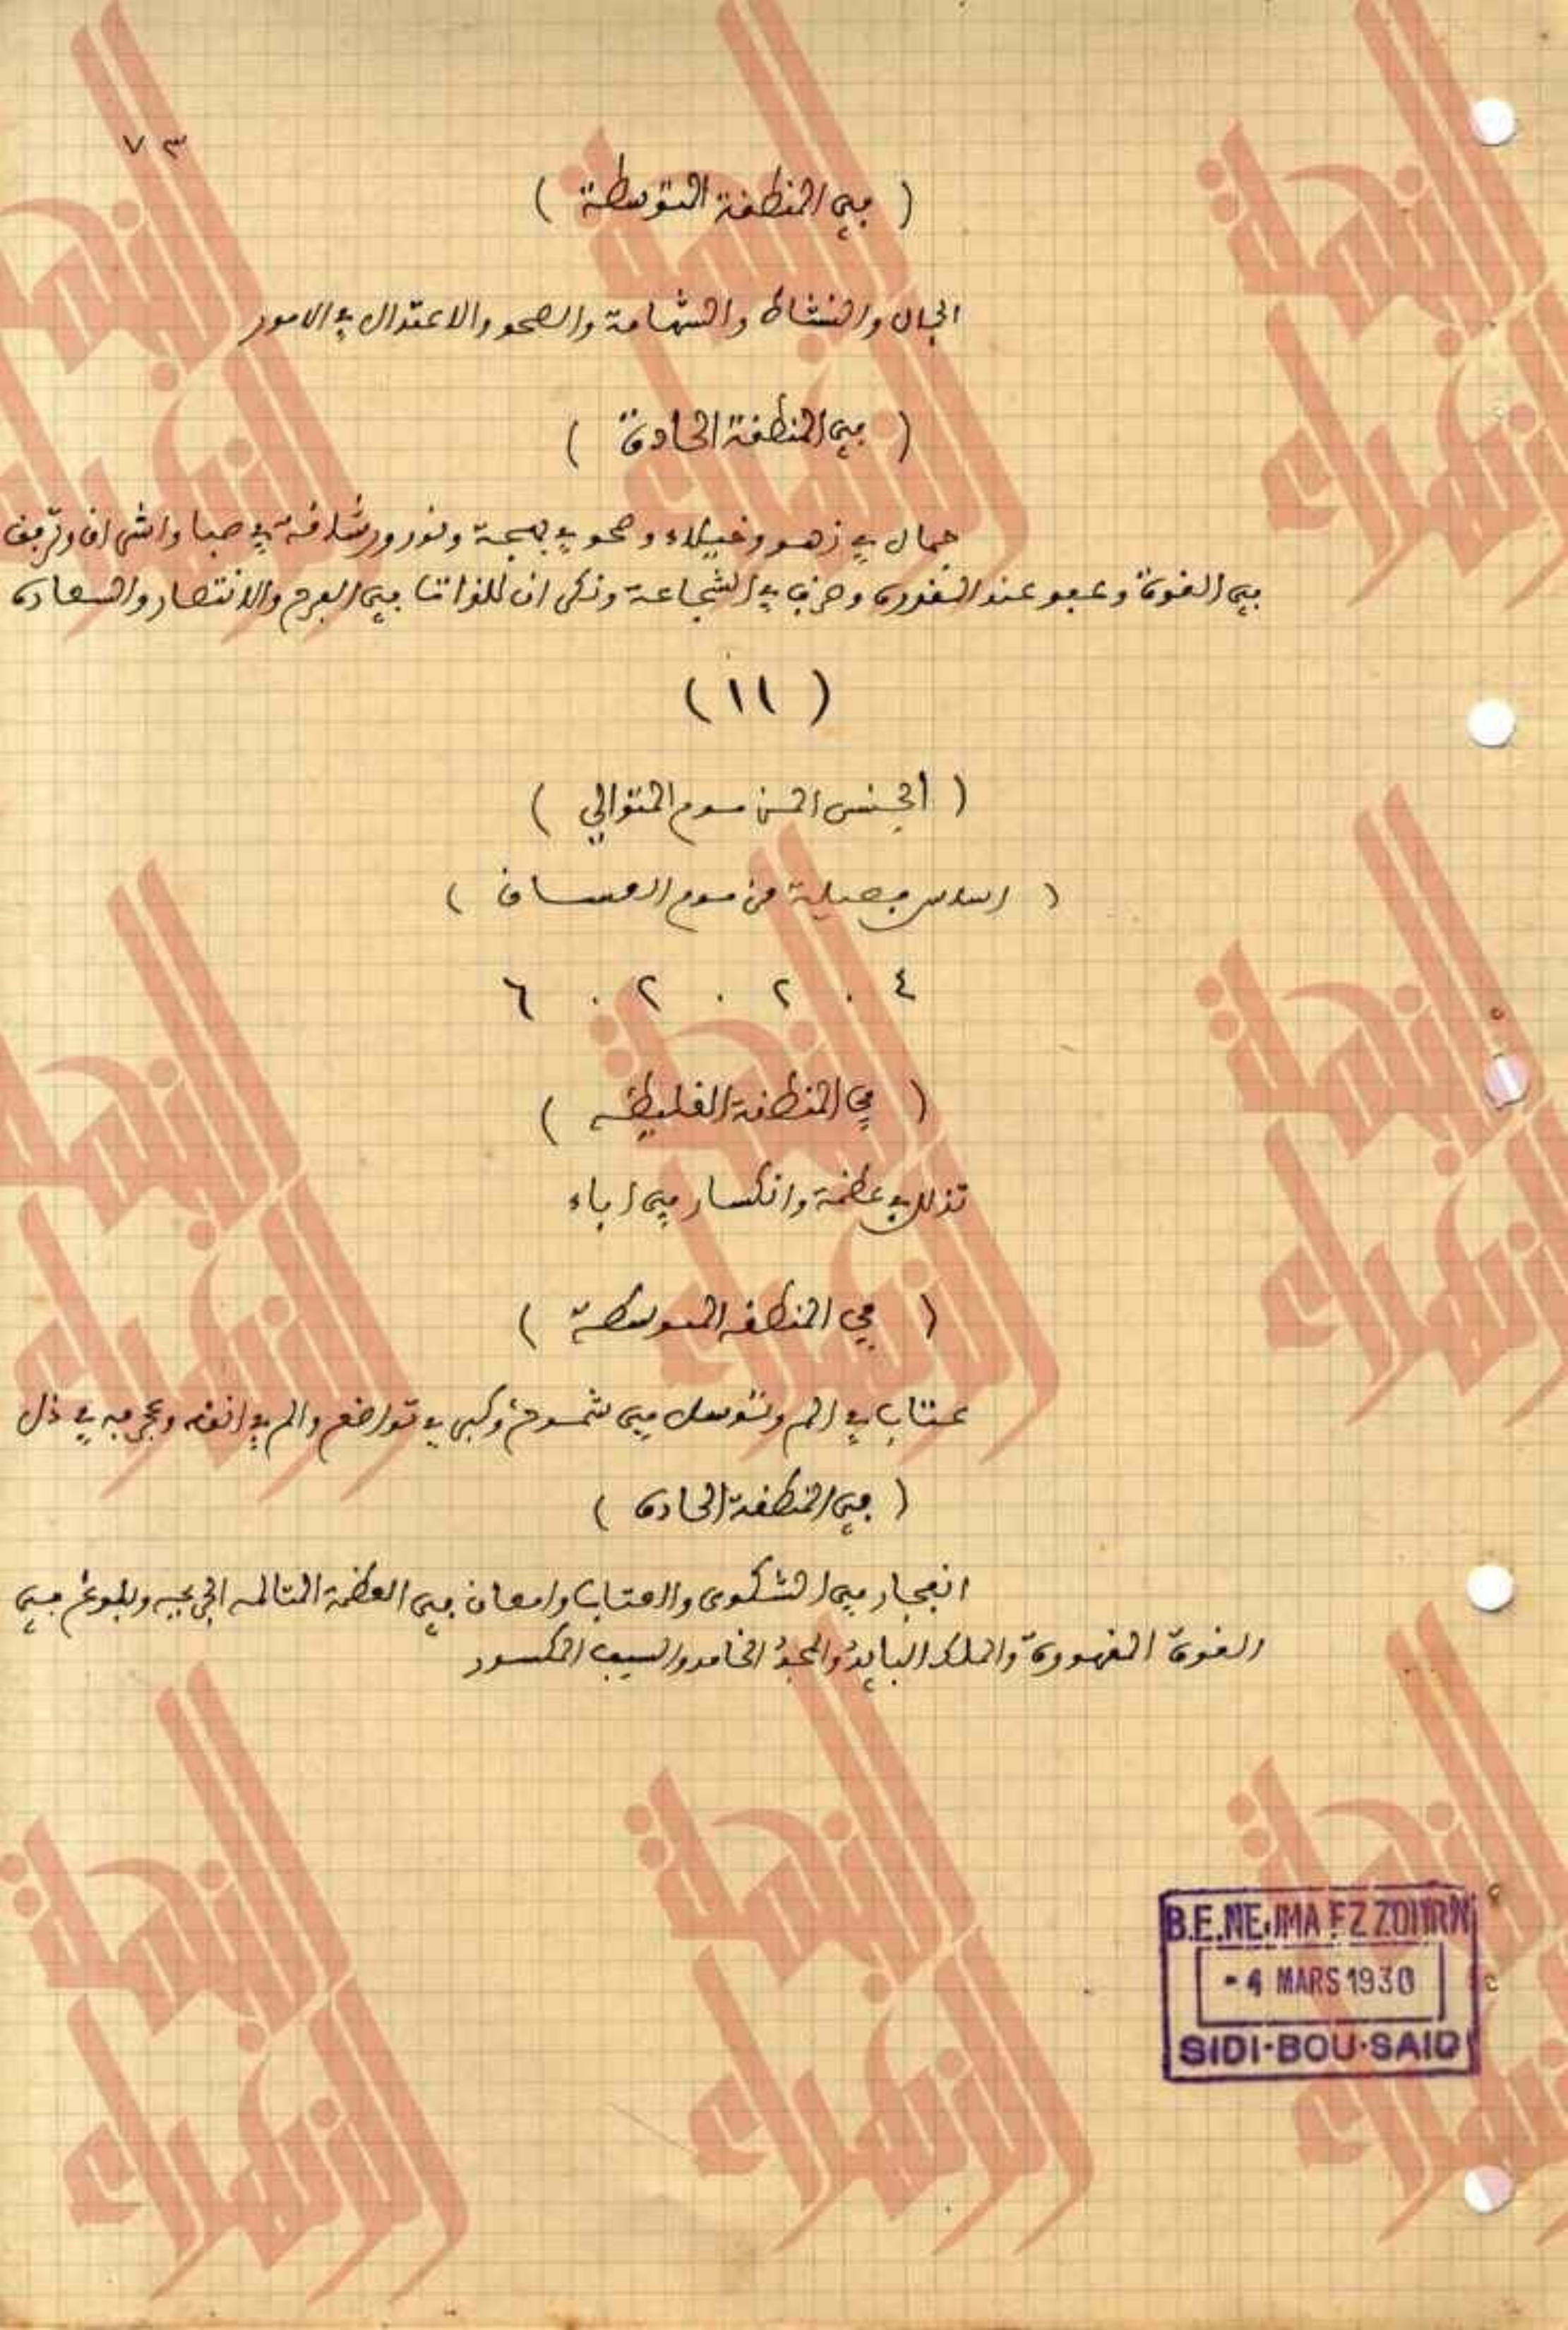 ٧٣
( في المنطقة المتوسطة )
الجمال والنشاط والشهامة والصحو والاعتدال في الامور
( في المنطقة الحادة )
جمال في زهو وخيلاء وصحو في بهجة ونور ورشاقة في صبا واشراق وترفق
في القوة وعفو عند المقدرة وحزن في الشجاعة وذكران للذاتنا في الفرح والانتصار والسعادة
( ١١ )
( الجنس المزموم المتوالي )
( اساس فصيلة مزموم العساق )
٤ . ٢ . ٢ . ٦
( في المنطقة الغليظه )
تذلل في عظمة وانكسار في اباء
( في المنطقه المتوسطة )
عتاب في الم وتوسل في شموخ وكبر في تواضع والم في انفه وعجرفه في ذل
( في المنطقة الحادة )
انفجار في الشكوى والعتاب وامعان في العظمة المتالمه الجريحيه وبلوغ في
القوة المقهورة والملك البايد والمجد الخامد والسيف المكسور
B.E.NEJMA EZ ZOHRA
- 4 MARS 1930
SIDI-BOU-SAID
النجمة الزهراء